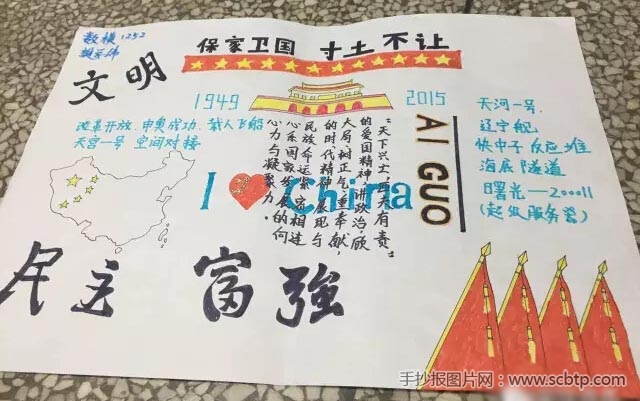 数模1252
文明
保家卫国 寸土不让
1949
2015
改革开放、申奥成功、载人飞船
天宫一号 空间对接
I China
"天下兴亡,匹夫有责"
的爱国精神,讲政治,顾
大局,树正气,重奉献,
的时代精神,展现与
民族命运紧密相连
心系国家发展的向
心力与凝聚力。
AI GUO
天河一号
辽宁舰
快中子反应堆
海底隧道
曙光—2000II
(超级服务器)
民主 富強
手抄报图片网:www.scbtp.com